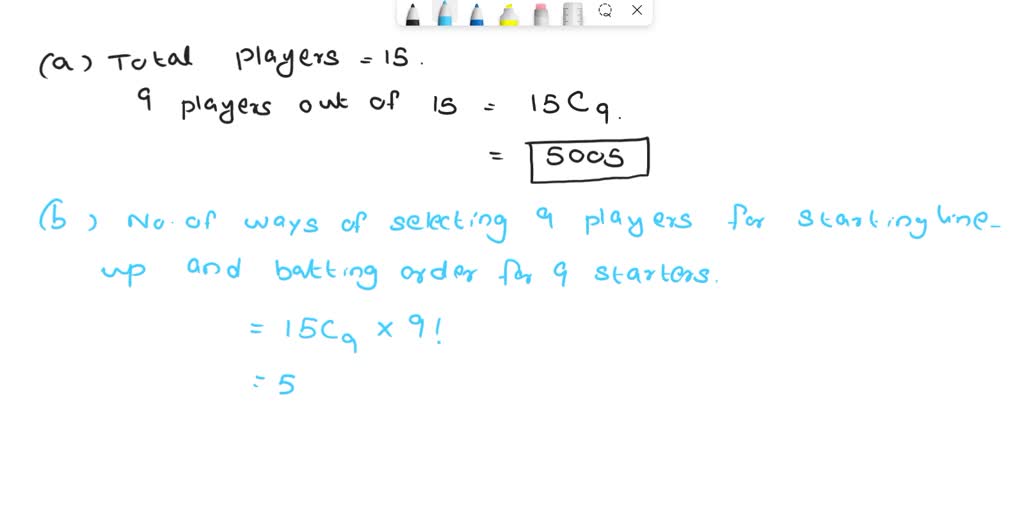 (a) Total players = 15.
9 players out of 15 = 15C9.
= 5005
(b) No. of ways of selecting 9 players for starting line-
up and batting order for 9 starters.
= 15C9 × 9!
= 5